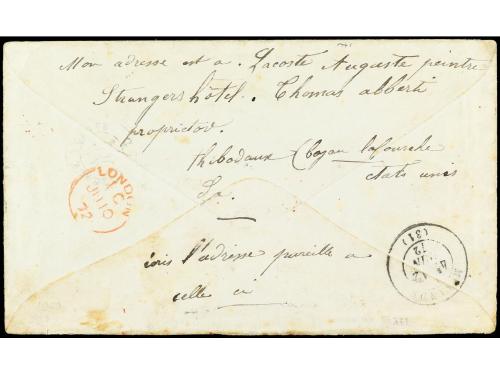 Mon adresse est a. Lacoste Auguste peintre
Strangers hôtel. Thomas abberti
proprietor.
thibodaux (bayou lafourche
La. états unis
écris l'adresse pareille a
celle ci
LONDON
C
10
72
(31)